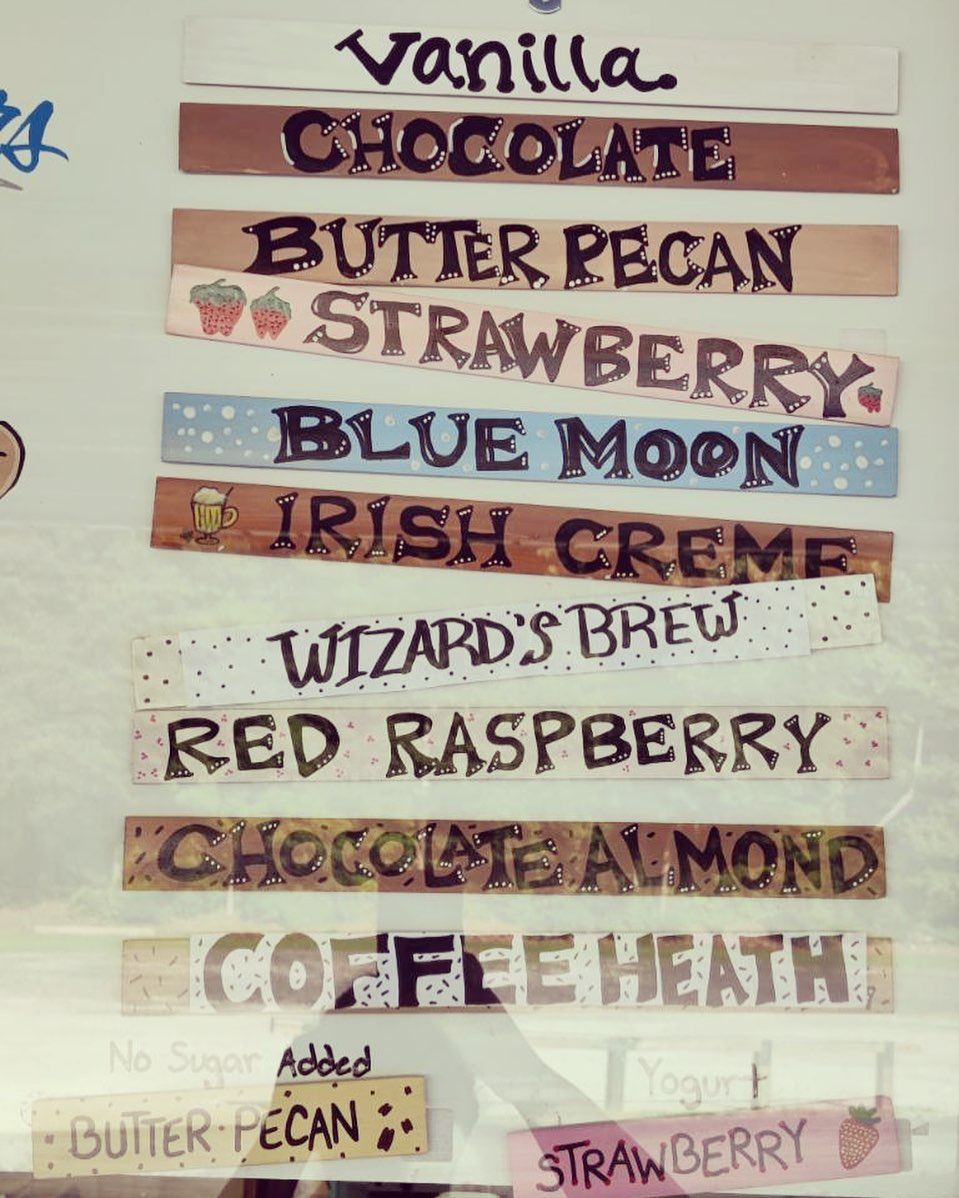 Vanilla
CHOCOLATE
BUTTER PECAN
STRAWBERRY
BLUE MOON
IRISH CREME
WIZARD'S BREW
RED RASPBERRY
CHOCOLATE ALMOND
COFFEE HEATH
No Sugar Added
BUTTER PECAN
Yogurt
STRAWBERRY